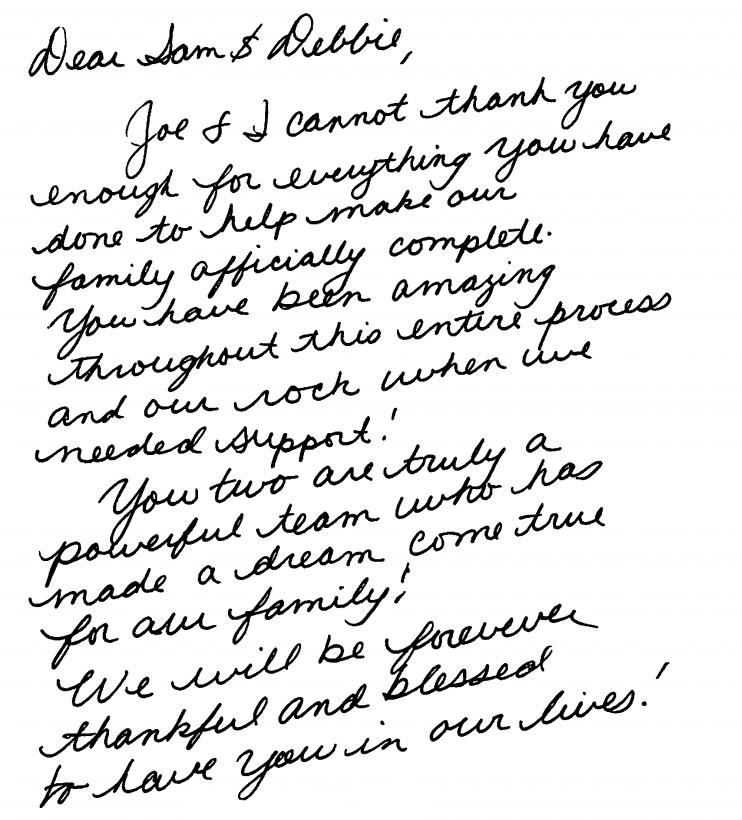 Dear Sam & Debbie,
Joe & I cannot thank you
enough for everything you have
done to help make our
family officially complete.
You have been amazing
throughout this entire process
and our rock when we
needed support!
You two are truly a
powerful team who has
made a dream come true
for our family!
We will be forevever
thankful and blessed
to have you in our lives!